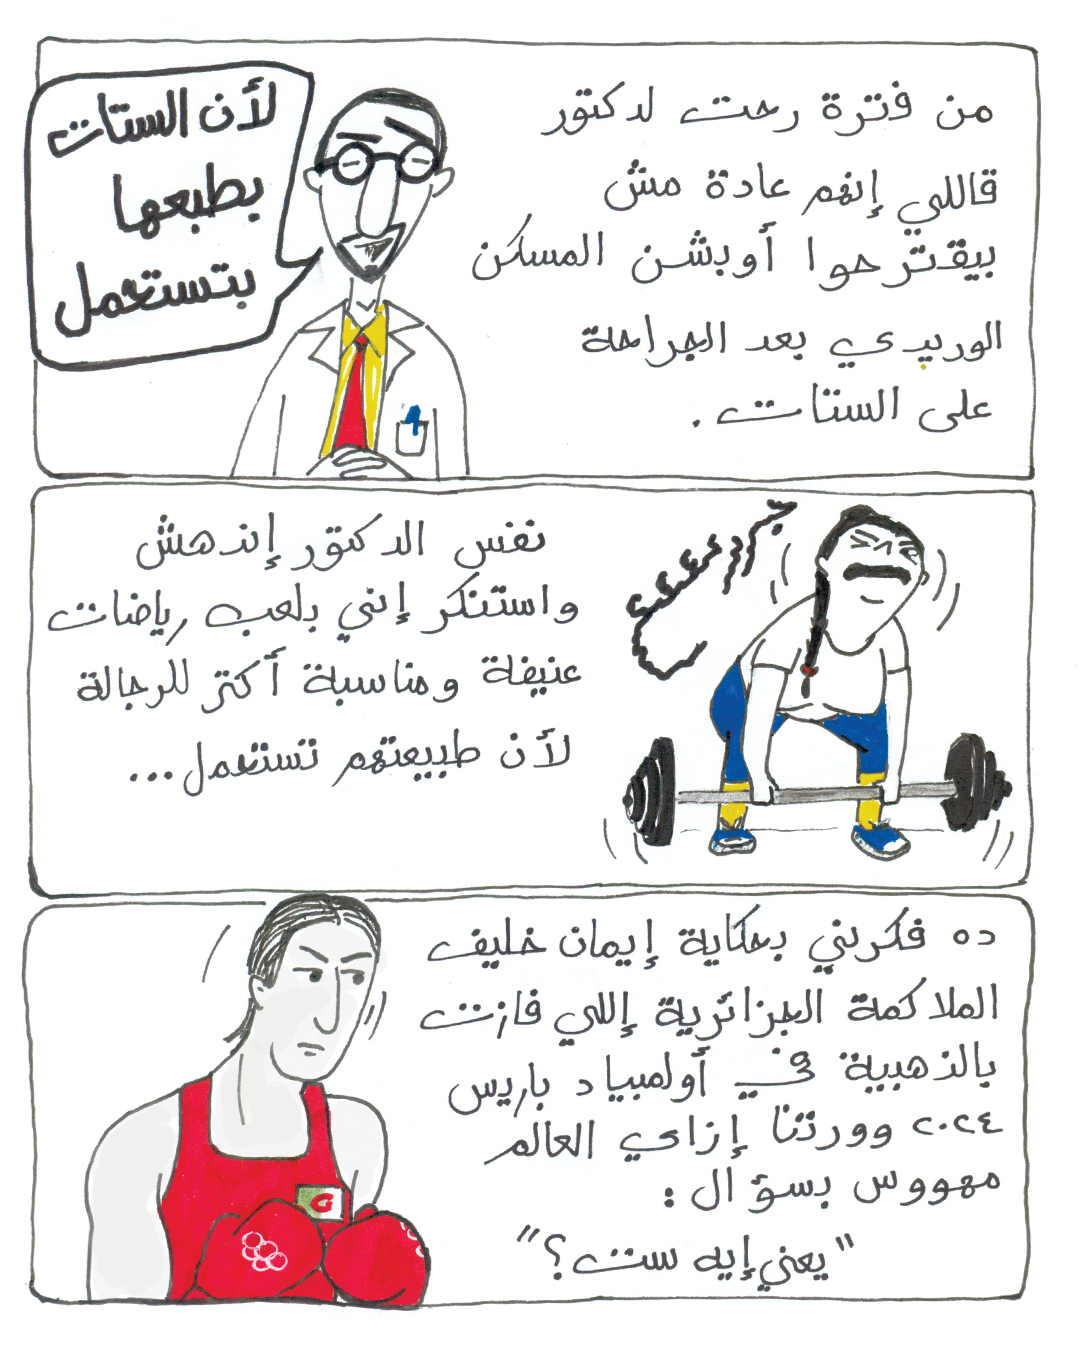 من فترة رحت لدكتور
قاللي إنهم عادة مش
بيقترحوا أوبشن المسكن
الوريدي بعد الجراحة
على الستات.
لأن الستات
بطبعها
بتستحمل
نفس الدكتور إندهش
واستنكر إني بلعب رياضات
عنيفة ومناسبة أكتر للرجالة
لأن طبيعتهم تستحمل...
ده فكرني بحكاية إيمان خليف
الملاكمة الجزائرية إللي فازت
بالذهبية في أولمبياد باريس
٢٠٢٤ وورتنا إزاي العالم
مهووس بسؤال:
"يعني إيه ست؟"